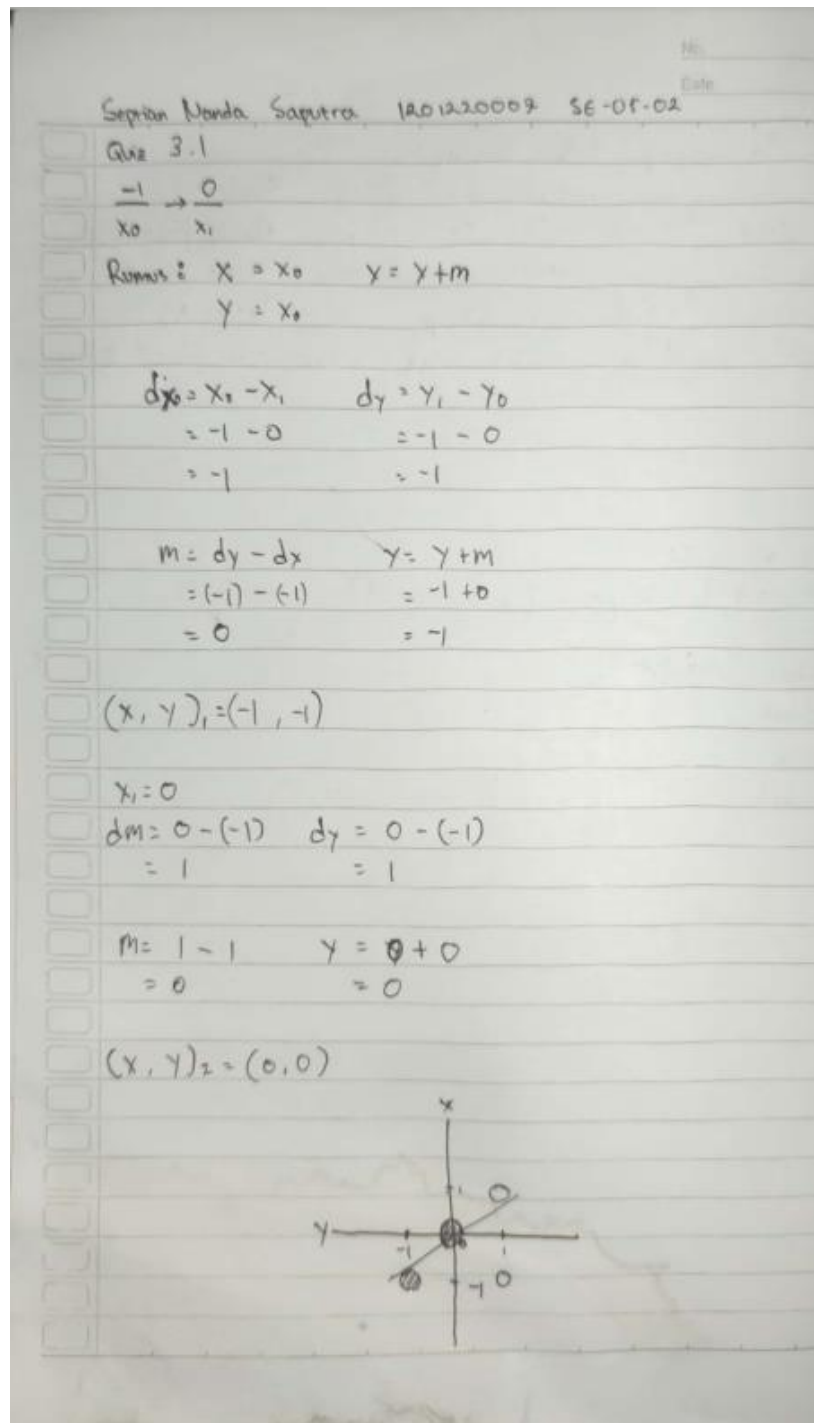 No.
Date
Septian Nanda Saputra 1201220007 SE-05-02
Quiz 3.1
-1 → 0
x0 x1
Rumus : X = X0 Y = Y+m
Y = X0
dx0 = X0 - X1 dy = Y1 - Y0
= -1 - 0 = -1 - 0
= -1 = -1
m = dy - dx Y = Y+m
= (-1) - (-1) = -1 + 0
= 0 = -1
(X, Y)1 = (-1, -1)
X1 = 0
dm = 0 - (-1) dy = 0 - (-1)
= 1 = 1
m = 1 - 1 Y = 0 + 0
= 0 = 0
(X, Y)2 = (0,0)
X
1
Y -1 1
-1